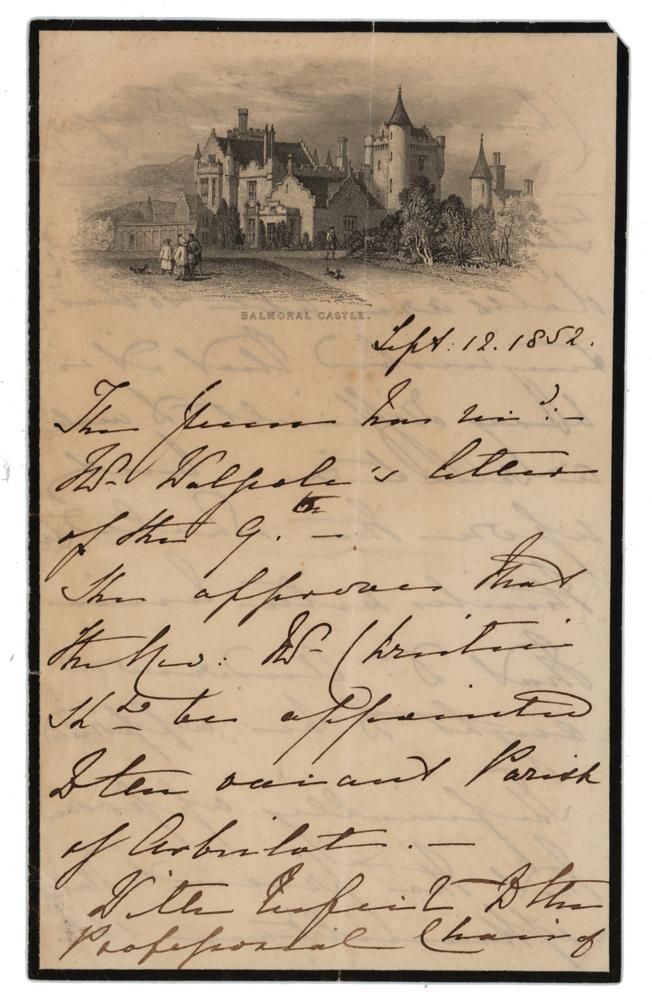 BALMORAL CASTLE.
Sept: 12. 1852.
The Queen has recd. –
Mr Walpole's letter
of the 9.th –
She approves that
the Rev: Mr Christie
shd be appointed
to the vacant Parish
of Arbirlot. –
With respect to the
Professorial Chair of